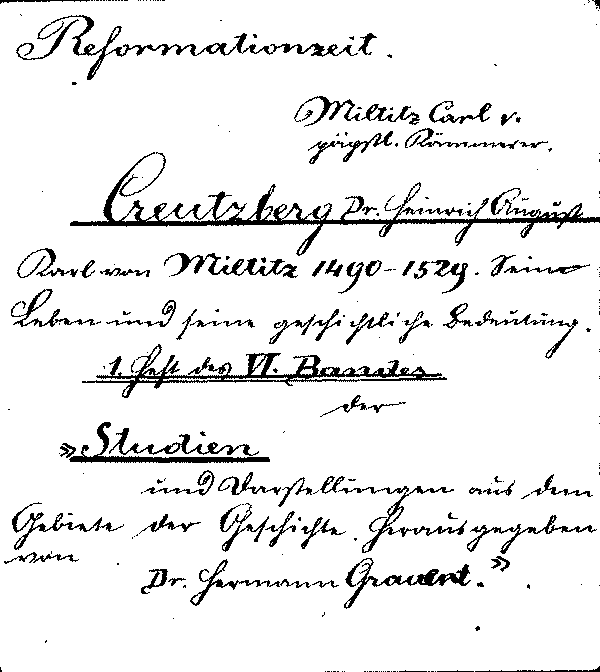 Reformationzeit.
Miltitz Carl v.
päpstl. Kämmerer.
Creutzberg Dr. Heinrich August
Karl von Miltitz 1490-1529. Sein
Leben und seine geschichtliche Bedeutung.
1. Heft des VI. Bandes
der
»Studien
und Darstellungen aus dem
Gebiete der Geschichte. Herausgegeben
von
Dr. Hermann Grauert.»